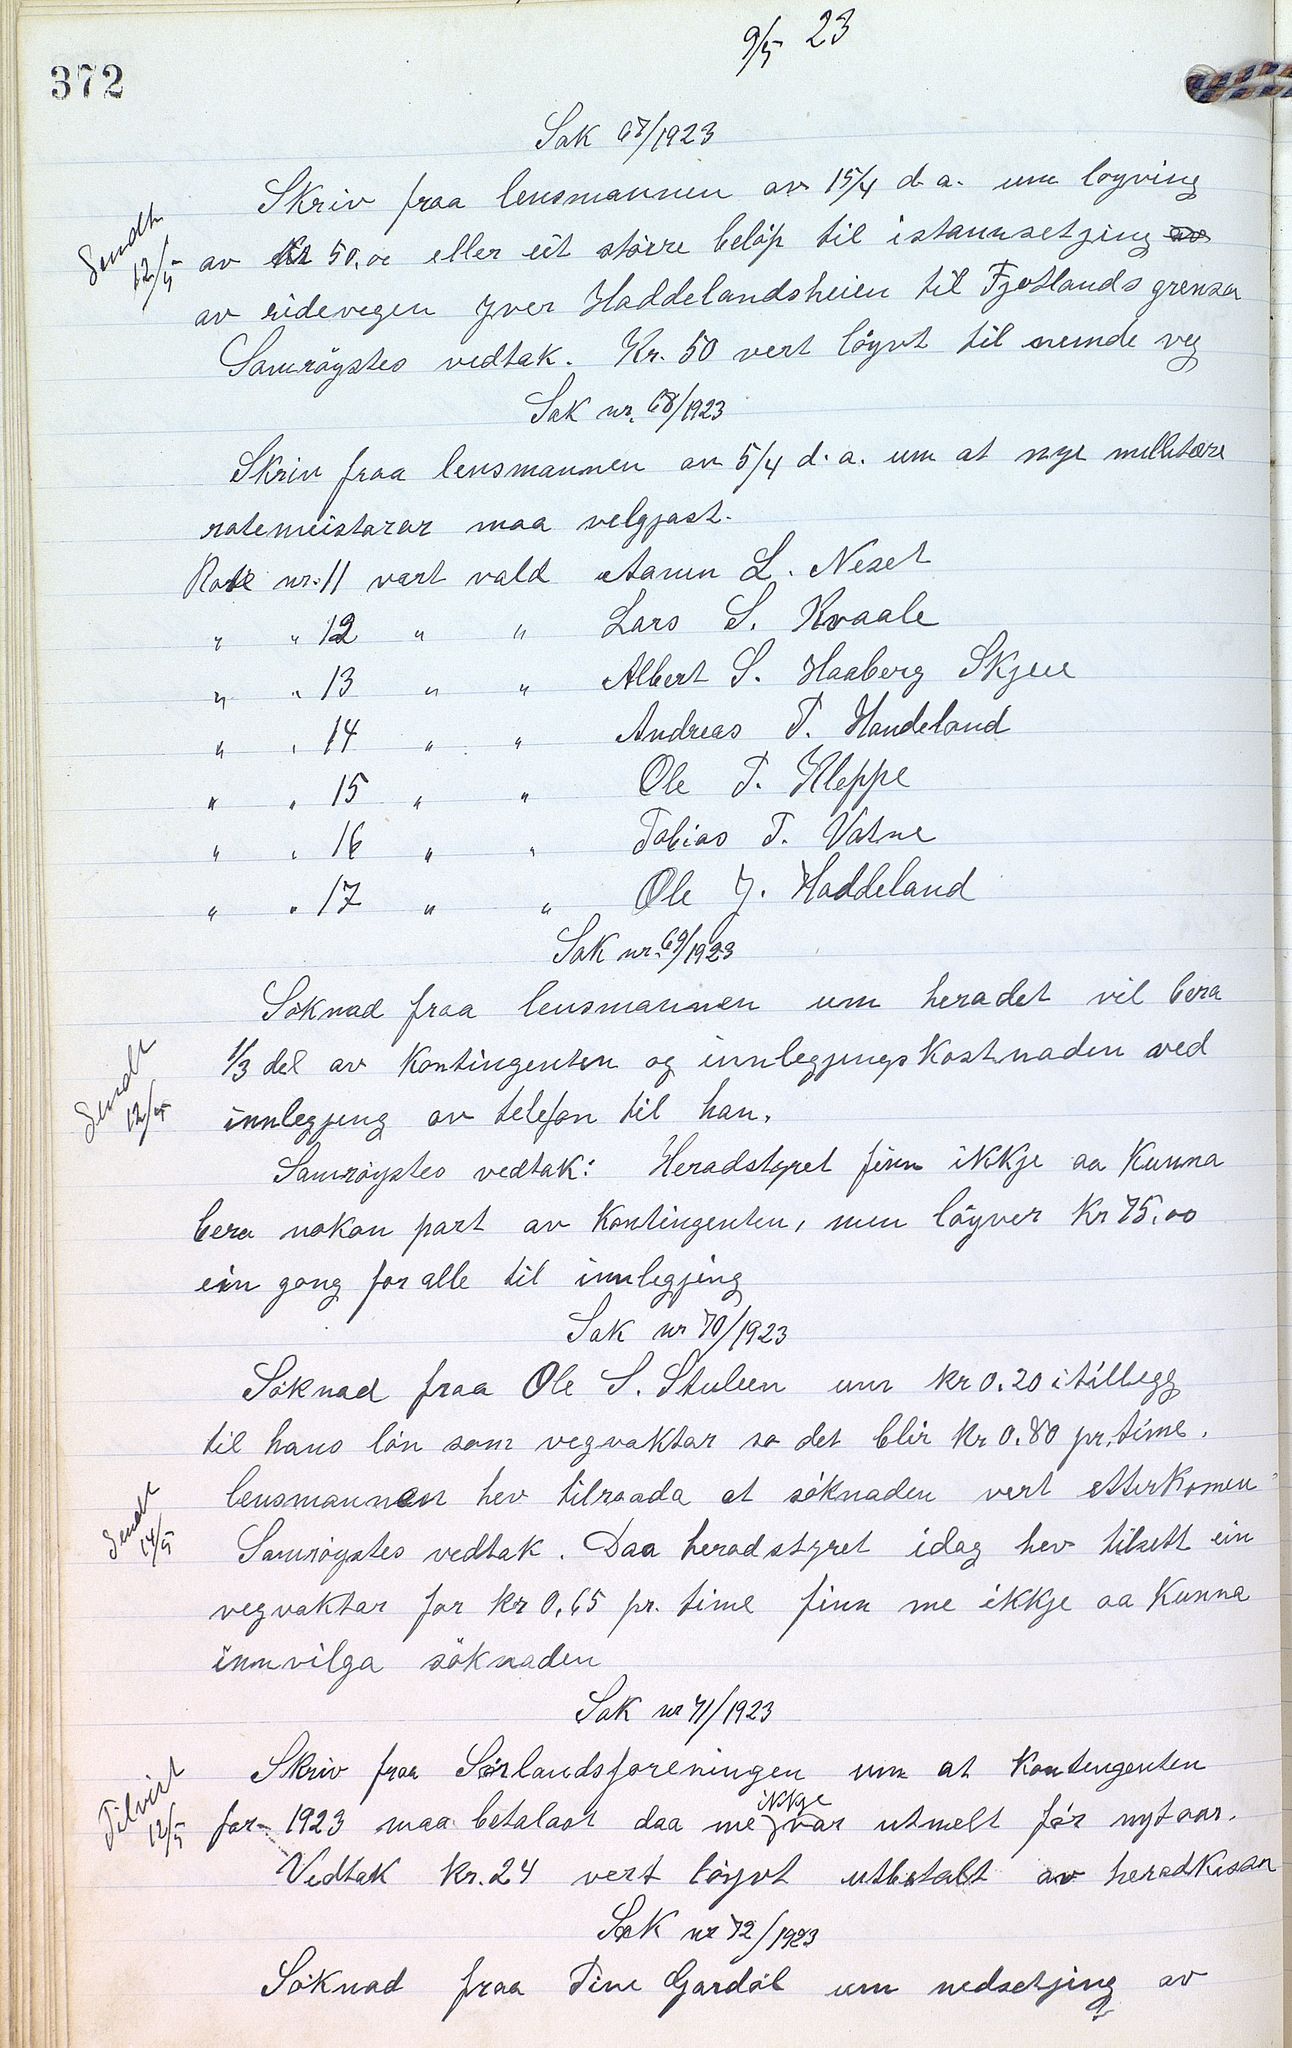 9/5 23
372
Sak 67/1923
Skriv fraa lensmannen av 15/4 d. a. um løyving
Sendt 12/5
av Kr 50,00 eller eit større beløp til istannsetjing av
av ridevegen yver Haddelandsheien til Fjotlands grensa
Samrøystes vedtak. Kr. 50 vert løyvt til nemde veg
Sak nr. 68/1923
Skriv fraa lensmannen av 5/4 d. a. um at nye millitære
rotemeistarar maa velgjast.
Rote nr. 11 vart vald Aanen L. Neset
" " 12 " " Lars S. Kvaale
" " 13 " " Albert S. Haaberg Skjeie
" " 14 " " Andreas T. Handeland
" " 15 " " Ole T. Kleppe
" " 16 " " Tobias T. Vatne
" " 17 " " Ole J. Haddeland
Sak nr. 69/1923
Søknad fraa lensmannen um heradet vil bera
Sendt 12/5
1/3 del av kontingenten og innlegjingskostnaden ved
innlegjing av telefon til han.
Samrøystes vedtak: Heradstyret finn ikkje aa kunna
bera nokon part av kontingenten, men løyver kr 75,00
ein gong for alle til innlegjing
Sak nr 70/1923
Søknad fraa Ole S. Stuleen um kr 0.20 i tillegg
til hans løn som vegvaktar so det blir kr 0.80 pr. time.
Sendt 14/5
lensmannen hev tilraada at søknaden vert etterkomen
Samrøystes vedtak. Daa heradstyret idag hev tilsett ein
vegvaktar for kr 0,65 pr. time finn me ikkje aa kunna
innvilga søknaden
Sak nr 71/1923
Skriv fraa Sørlandsforeningen um at kontingenten
Tilvist 12/5
for 1923 maa betalast daa me ikkje var utmelt før nytaar.
Vedtak kr. 24 vert løyvt utbetalt av heradkassan
Sak nr 72/1923
Søknad fraa Tine Gardøl um nedsetjing av